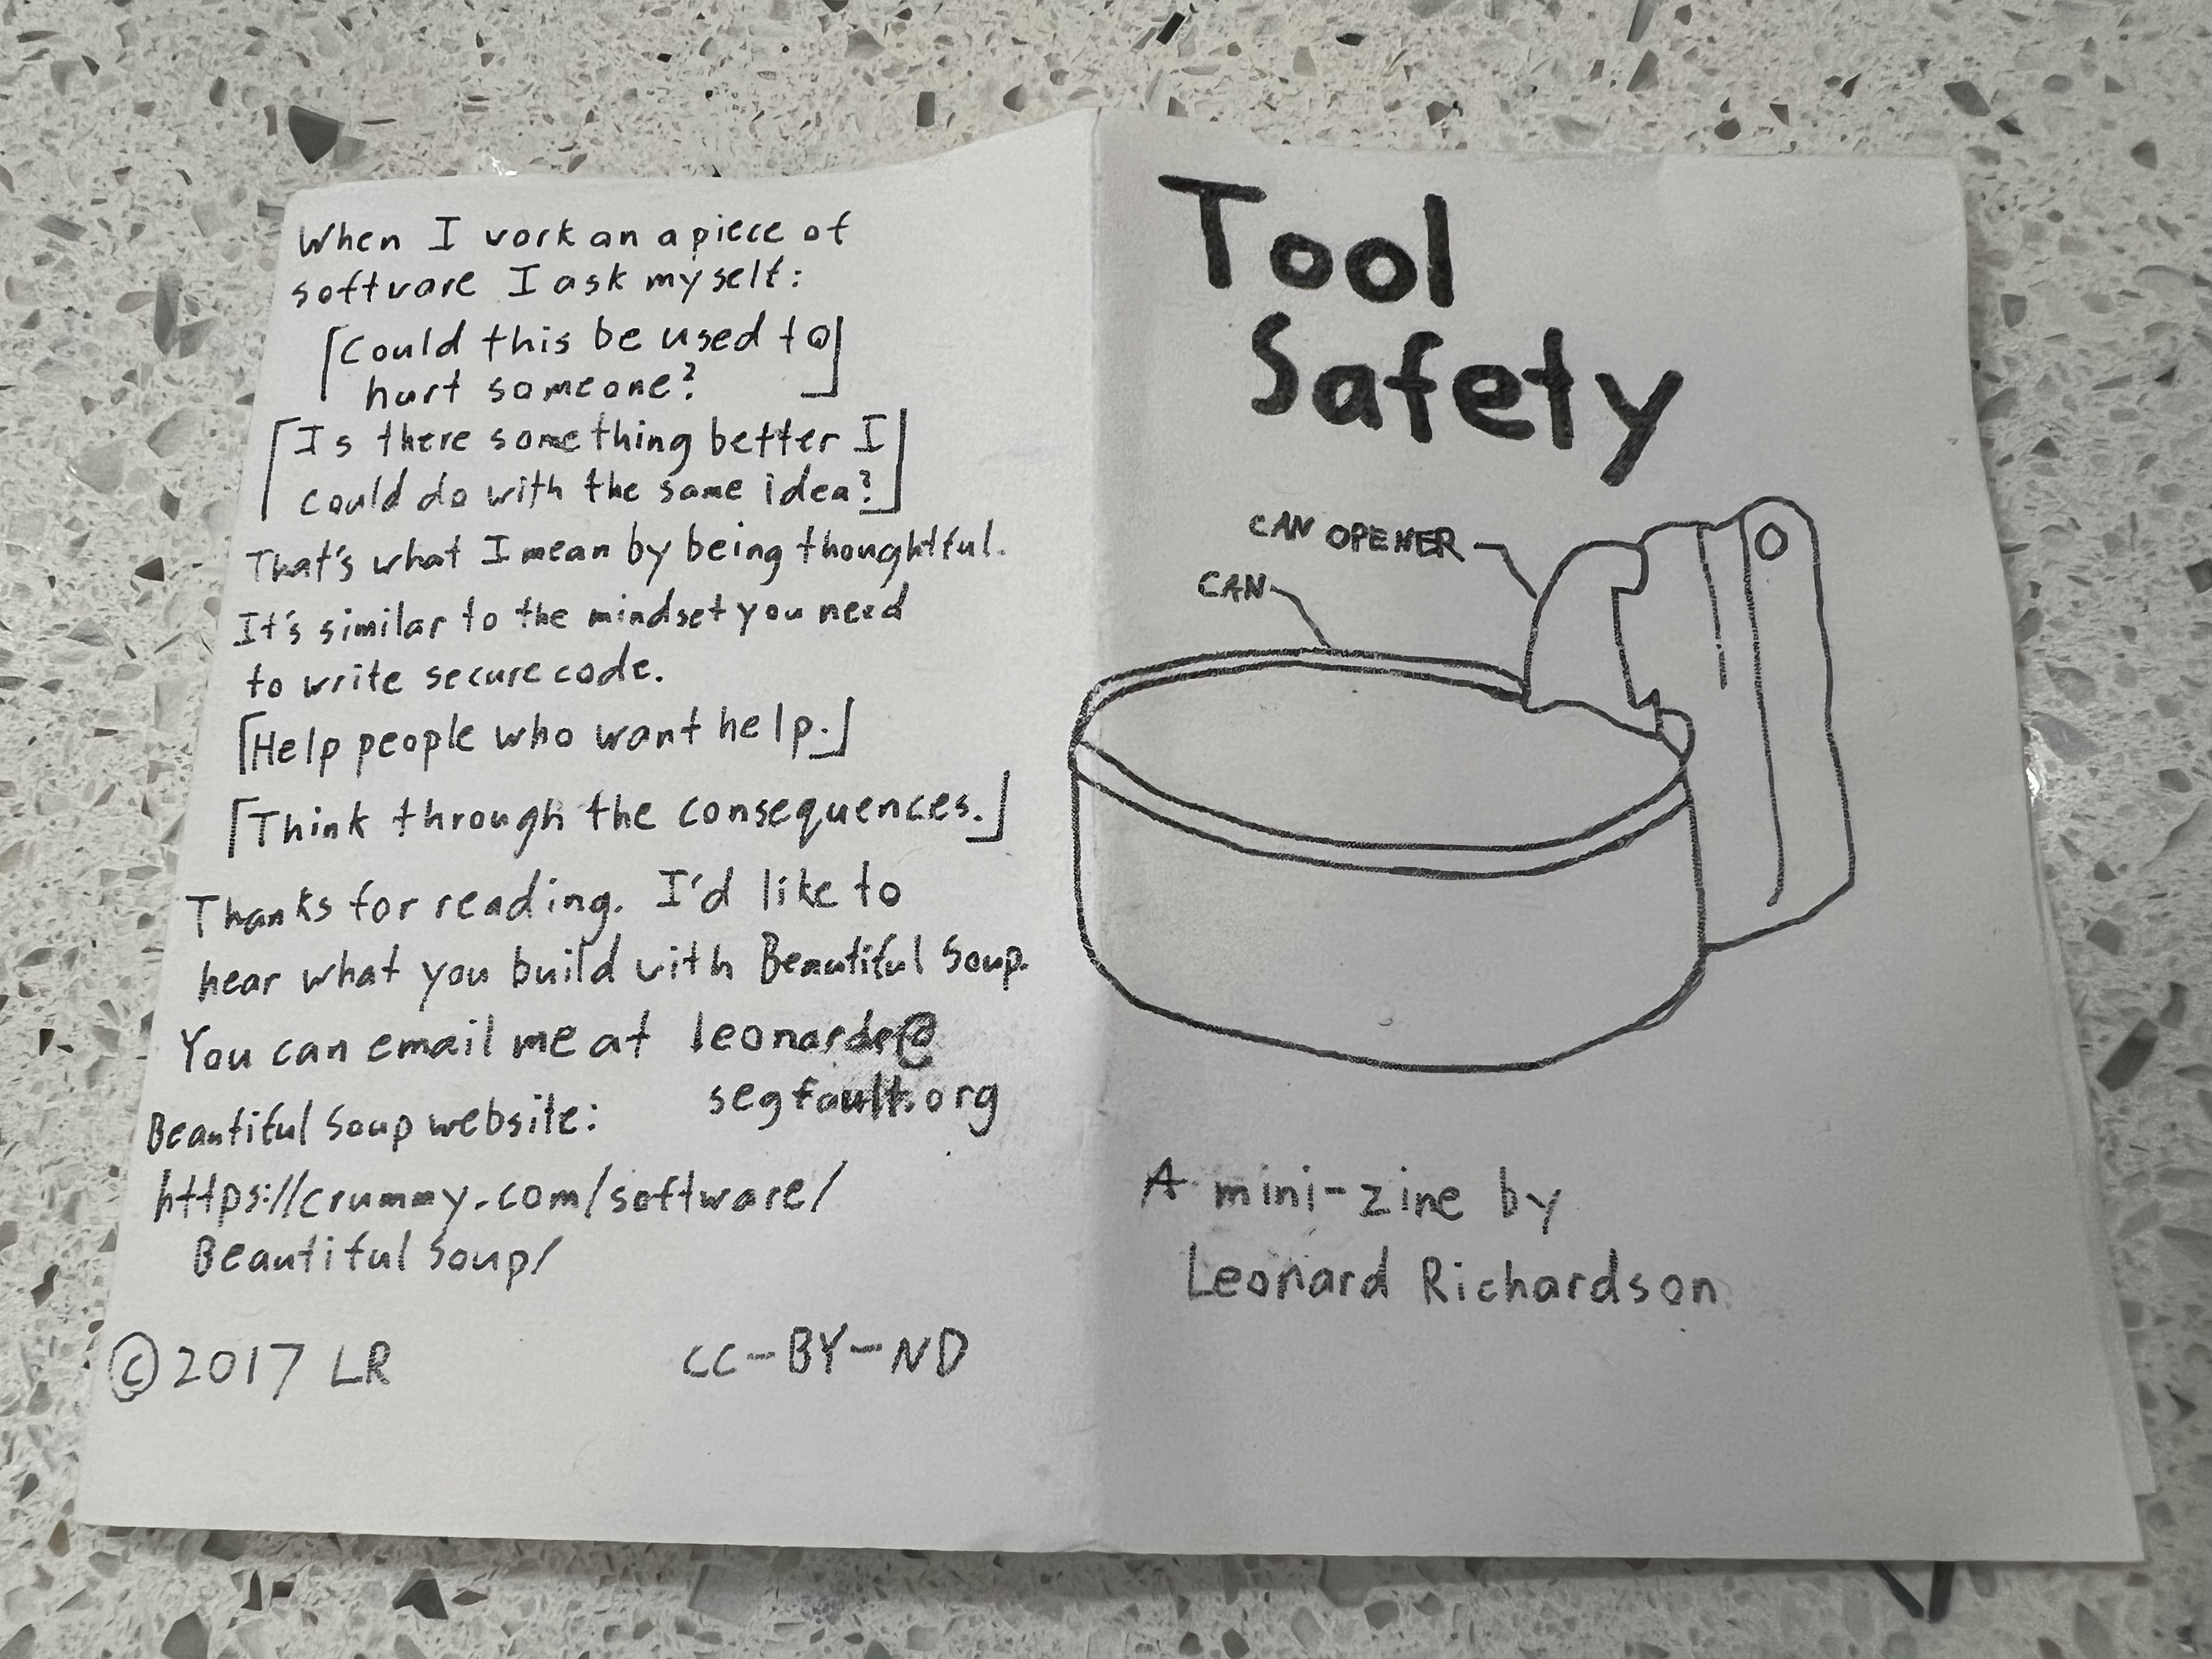 When I work on a piece of
software I ask myself:
[Could this be used to
hurt someone?]
[Is there something better I
could do with the same idea?]
That's what I mean by being thoughtful.
It's similar to the mindset you need
to write secure code.
[Help people who want help.]
[Think through the consequences.]
Thanks for reading. I'd like to
hear what you build with Beautiful Soup.
You can email me at leonardr@
segfault.org
Beautiful Soup website:
https://crummy.com/software/
BeautifulSoup/
© 2017 LR CC-BY-ND
Tool
Safety
CAN OPENER
CAN
A mini-zine by
Leonard Richardson